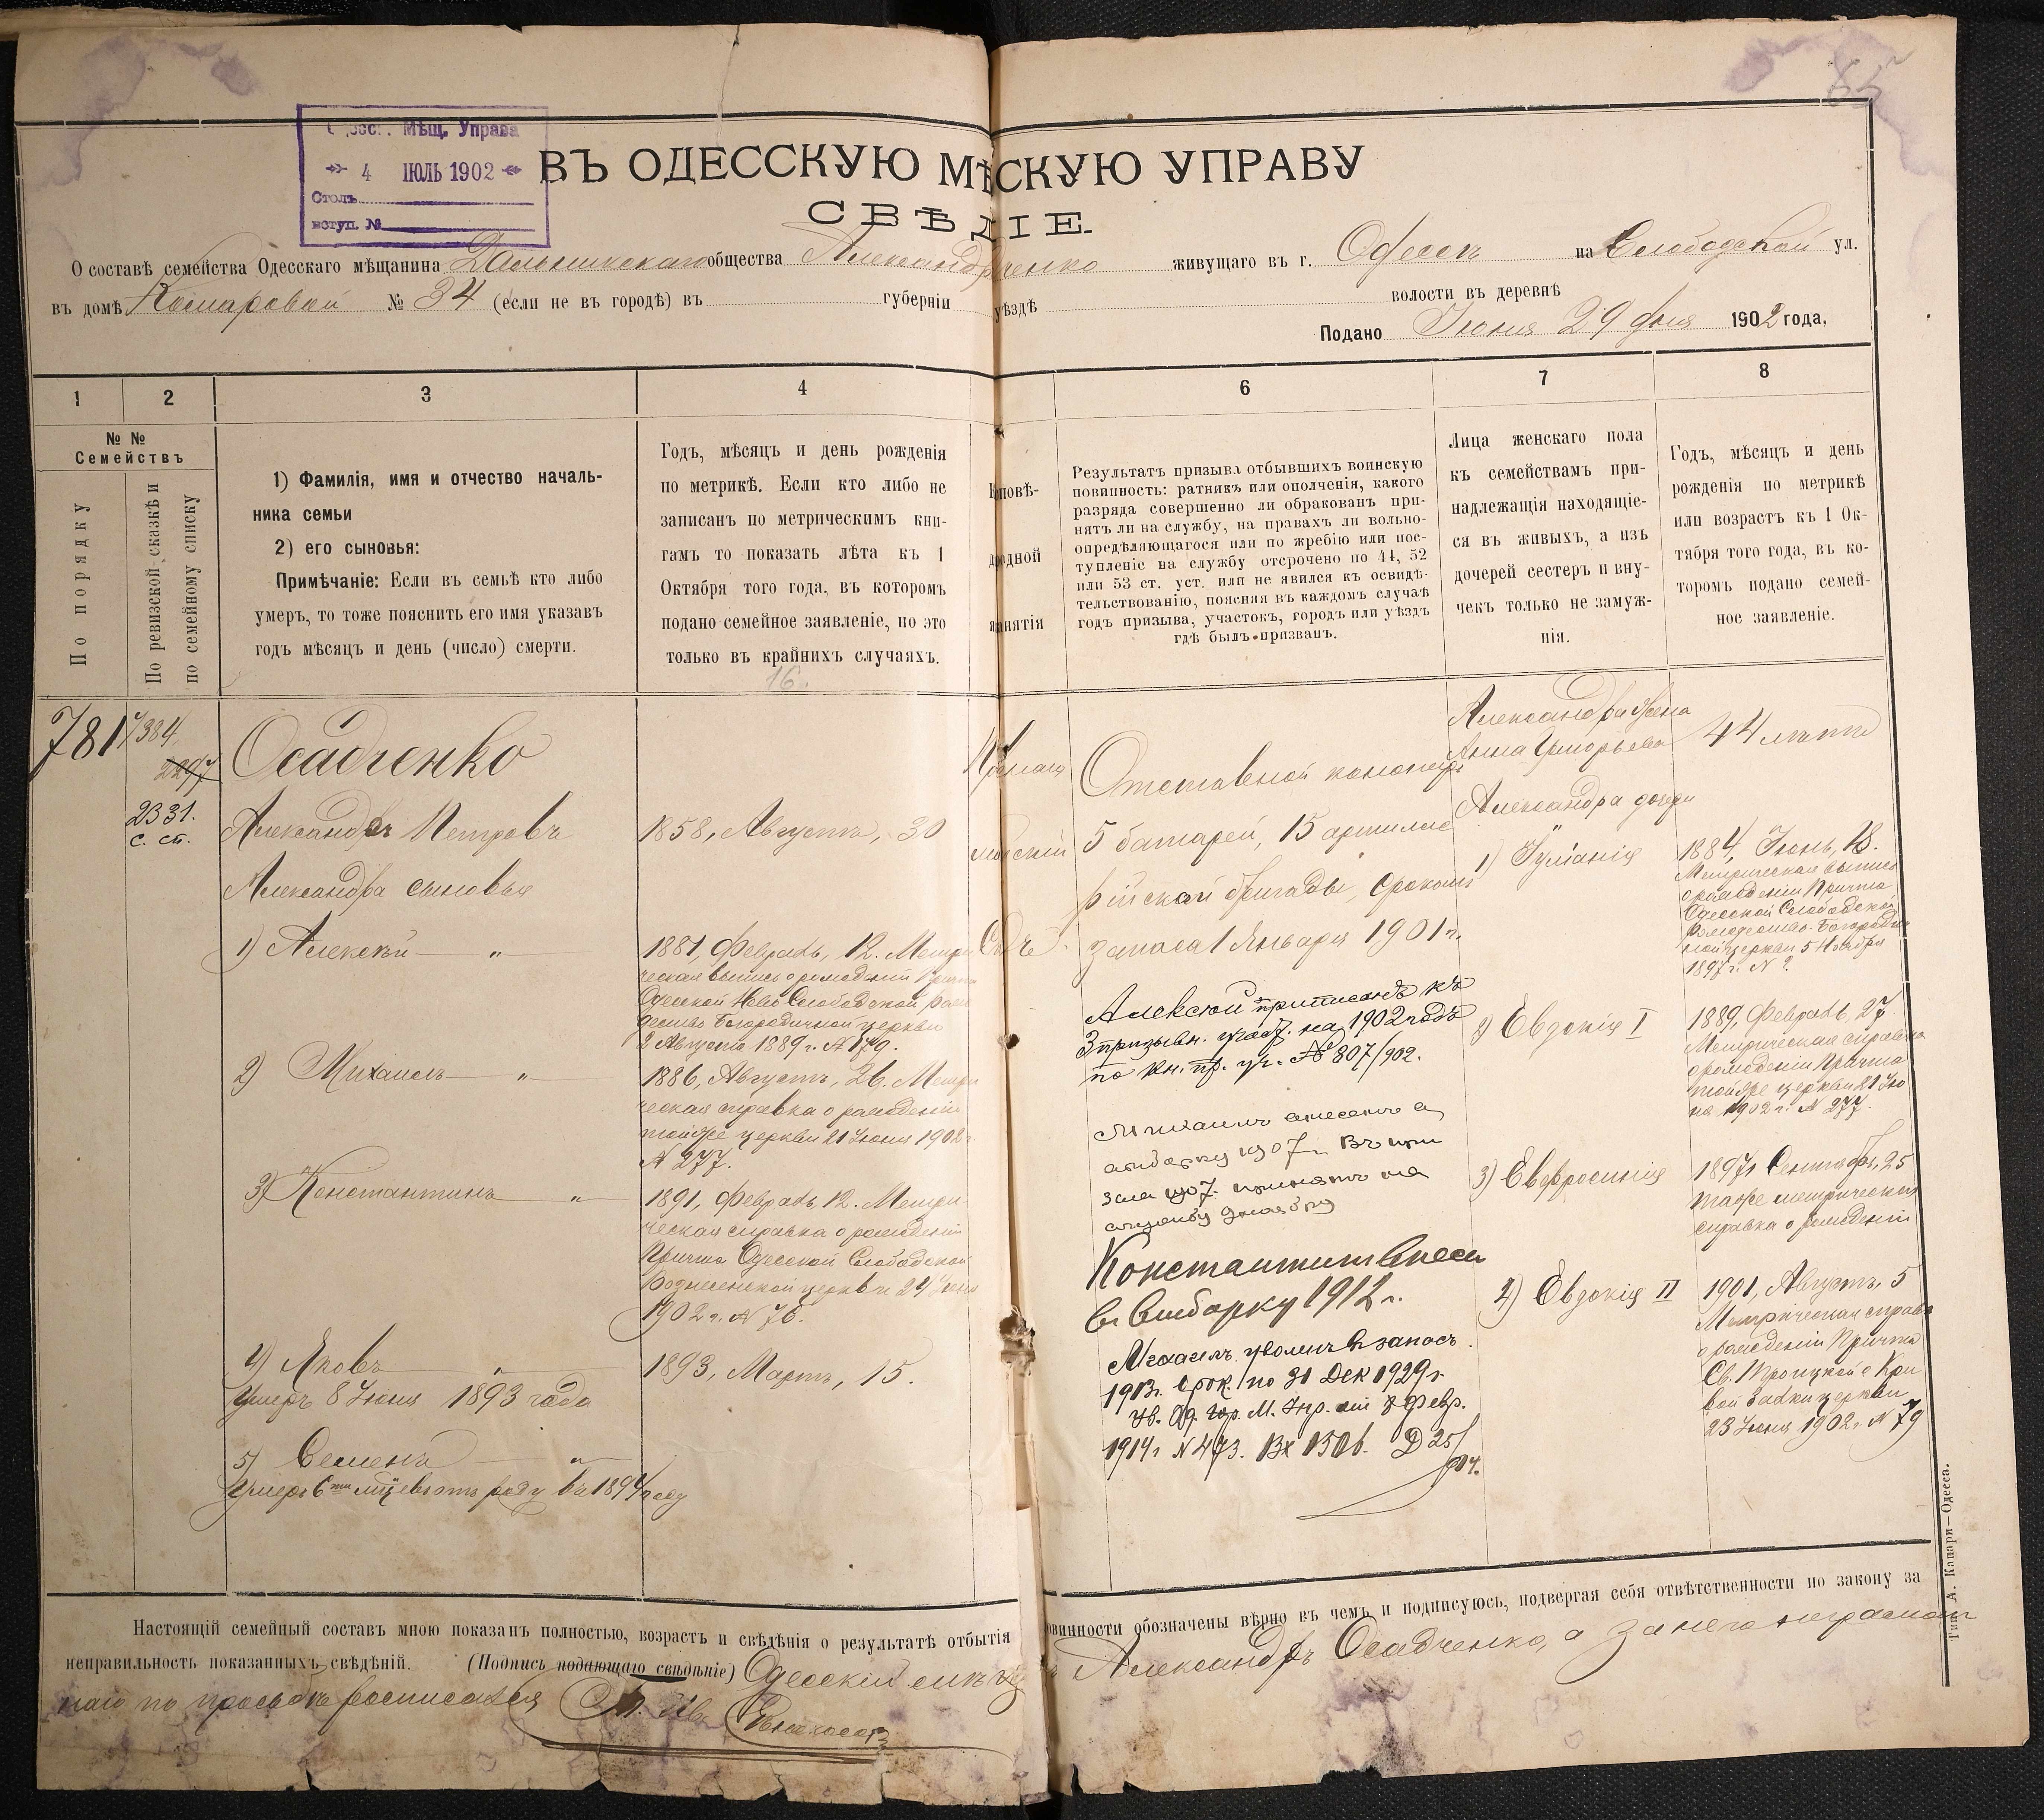 Мѣщ. Управа
4 ІЮЛЬ 1902
Столъ
вступ. №
ВЪ ОДЕССКУЮ МѢСКУЮ УПРАВУ
СВѢ ІЕ.
О составѣ семейства Одесскаго мѣщанина Дальникскаго общества живущаго въ г. Одессѣ на Слободской ул.
въ домѣ Комаровой № 34 (если не въ городѣ) въ губерніи уѣздѣ волости въ деревнѣ
Подано Іюня 29 дня 1902 года,
1 2 3 4 6 7 8
№ №
Семействъ
По порядку
По ревизской сказкѣ и
по семейному списку
1) Фамилія, имя и отчество началь-
ника семьи
2) его сыновья:
Примѣчаніе: Если въ семьѣ кто либо
умеръ, то тоже пояснить его имя указавъ
годъ мѣсяцъ и день (число) смерти.
Годъ, мѣсяцъ и день рожденія
по метрикѣ. Если кто либо не
записанъ по метрическимъ кни-
гамъ то показать лѣта къ 1
Октября того года, въ которомъ
подано семейное заявленіе, но это
только въ крайнихъ случаяхъ.
16.
повѣ-
родной
нятія
Результатъ призыва отбывшихъ воинскую
повинность: ратникъ или ополченія, какого
разряда совершенно ли обракованъ при-
нятъ ли на службу, на правахъ ли вольно-
опредѣляющагося или по жребію или пос-
тупленіе на службу отсрочено по 44, 52
или 53 ст. уст. или не явился къ освидѣ-
тельствованію, поясняя въ каждомъ случаѣ
годъ призыва, участокъ, городъ или уѣздъ
гдѣ былъ призванъ.
Лица женскаго пола
къ семействамъ при-
надлежащія находящіе-
ся въ живыхъ, а изъ
дочерей сестеръ и вну-
чекъ только не замуж-
нія.
Годъ, мѣсяцъ и день
рожденія по метрикѣ
или возрастъ къ 1 Ок-
тября того года, въ ко-
торомъ подано семей-
ное заявленіе.
781
384
2297
2331.
с. сп.
Осадченко
Александръ Петровъ
Александра сыновья
1) Алексѣй — „ —
2) Михаилъ — „ —
3) Константинъ — „
4) Яковъ — „ —
умеръ 8 Іюня 1893 года
5) Семенъ — „ —
умеръ 6 въ 1894 году
1858, Августъ, 30
1881, Февраль, 12. Метри
ческая выпись о рожденіи Причта
Одесской Ново Слободской Рож
дество Богородичной церкви
2 Августа 1889 г. № 179.
1886, Августъ, 26. Метри
ческая справка о рожденіи
тойже церкви 21 Іюня 1902 г.
№ 277.
1891, Февраль, 12. Метри-
ческая справка о рожденіи
Причта Одесской Слободской
Вознесенской церкви 24 Іюня
1902 г. № 76.
1893, Мартъ, 15.
Отставной канониръ
5 батареи, 15 артилле
рійской бригады, срокомъ
запаса 1 Января 1901 г.
Алексѣй приписанъ къ
3 призывн. участ. на 1902 годъ
по кн. пр. уч. № 807/902.
Михаилъ внесенъ въ
выборку 1907 г. Въ при
зывъ 1907 принятъ на
службу
Константинъ внесен
въ выборку 1912 г.
Михаилъ уволенъ въ запасъ.
1913 г. Срок. по 31 Дек 1929 г.
Ув. Од. М. Упр. от 7 Февр.
1914 г. № 473. Вх 1506. Д 25/
914.
Александра жена
Анна Григорьева
Александра дочери
1) Іуліанія
2) Евдокія I
3) Евфросинія
4) Евдокія II
44 лѣтъ
1884, Іюнь, 18.
Метрическая выпись
о рожденіи Причта
Одесской Слободской
Рождество-Богородич
ной церкви 5 Ноября
1897 г. № 2.
1889, Февраль, 27
Метрическая справка
о рожденіи Причта
тойже церкви 21 Ію
ня 1902 г. № 277.
1897 г. Сентябрь, 25
таже метрическая
справка о рожденіи
1901, Августъ, 5
Метрическая справка
о рожденіи Причта
Св. Троицкой с. Кри
вой Балки церкви
23 Іюня 1902 г. № 79
Настоящій семейный составъ мною показанъ полностью, возрастъ и свѣдѣнія о результатѣ отбытія овинности обозначены вѣрно въ чемъ и подписуюсь, подвергая себя отвѣтственности по закону за
неправильность показанныхъ свѣдѣній. (Подпись подающаго свѣдѣніе) Одесскій Александръ Осадченко, а за него неграмот
наго по просьбѣ росписался
Тип. А. Капари—Одесса.